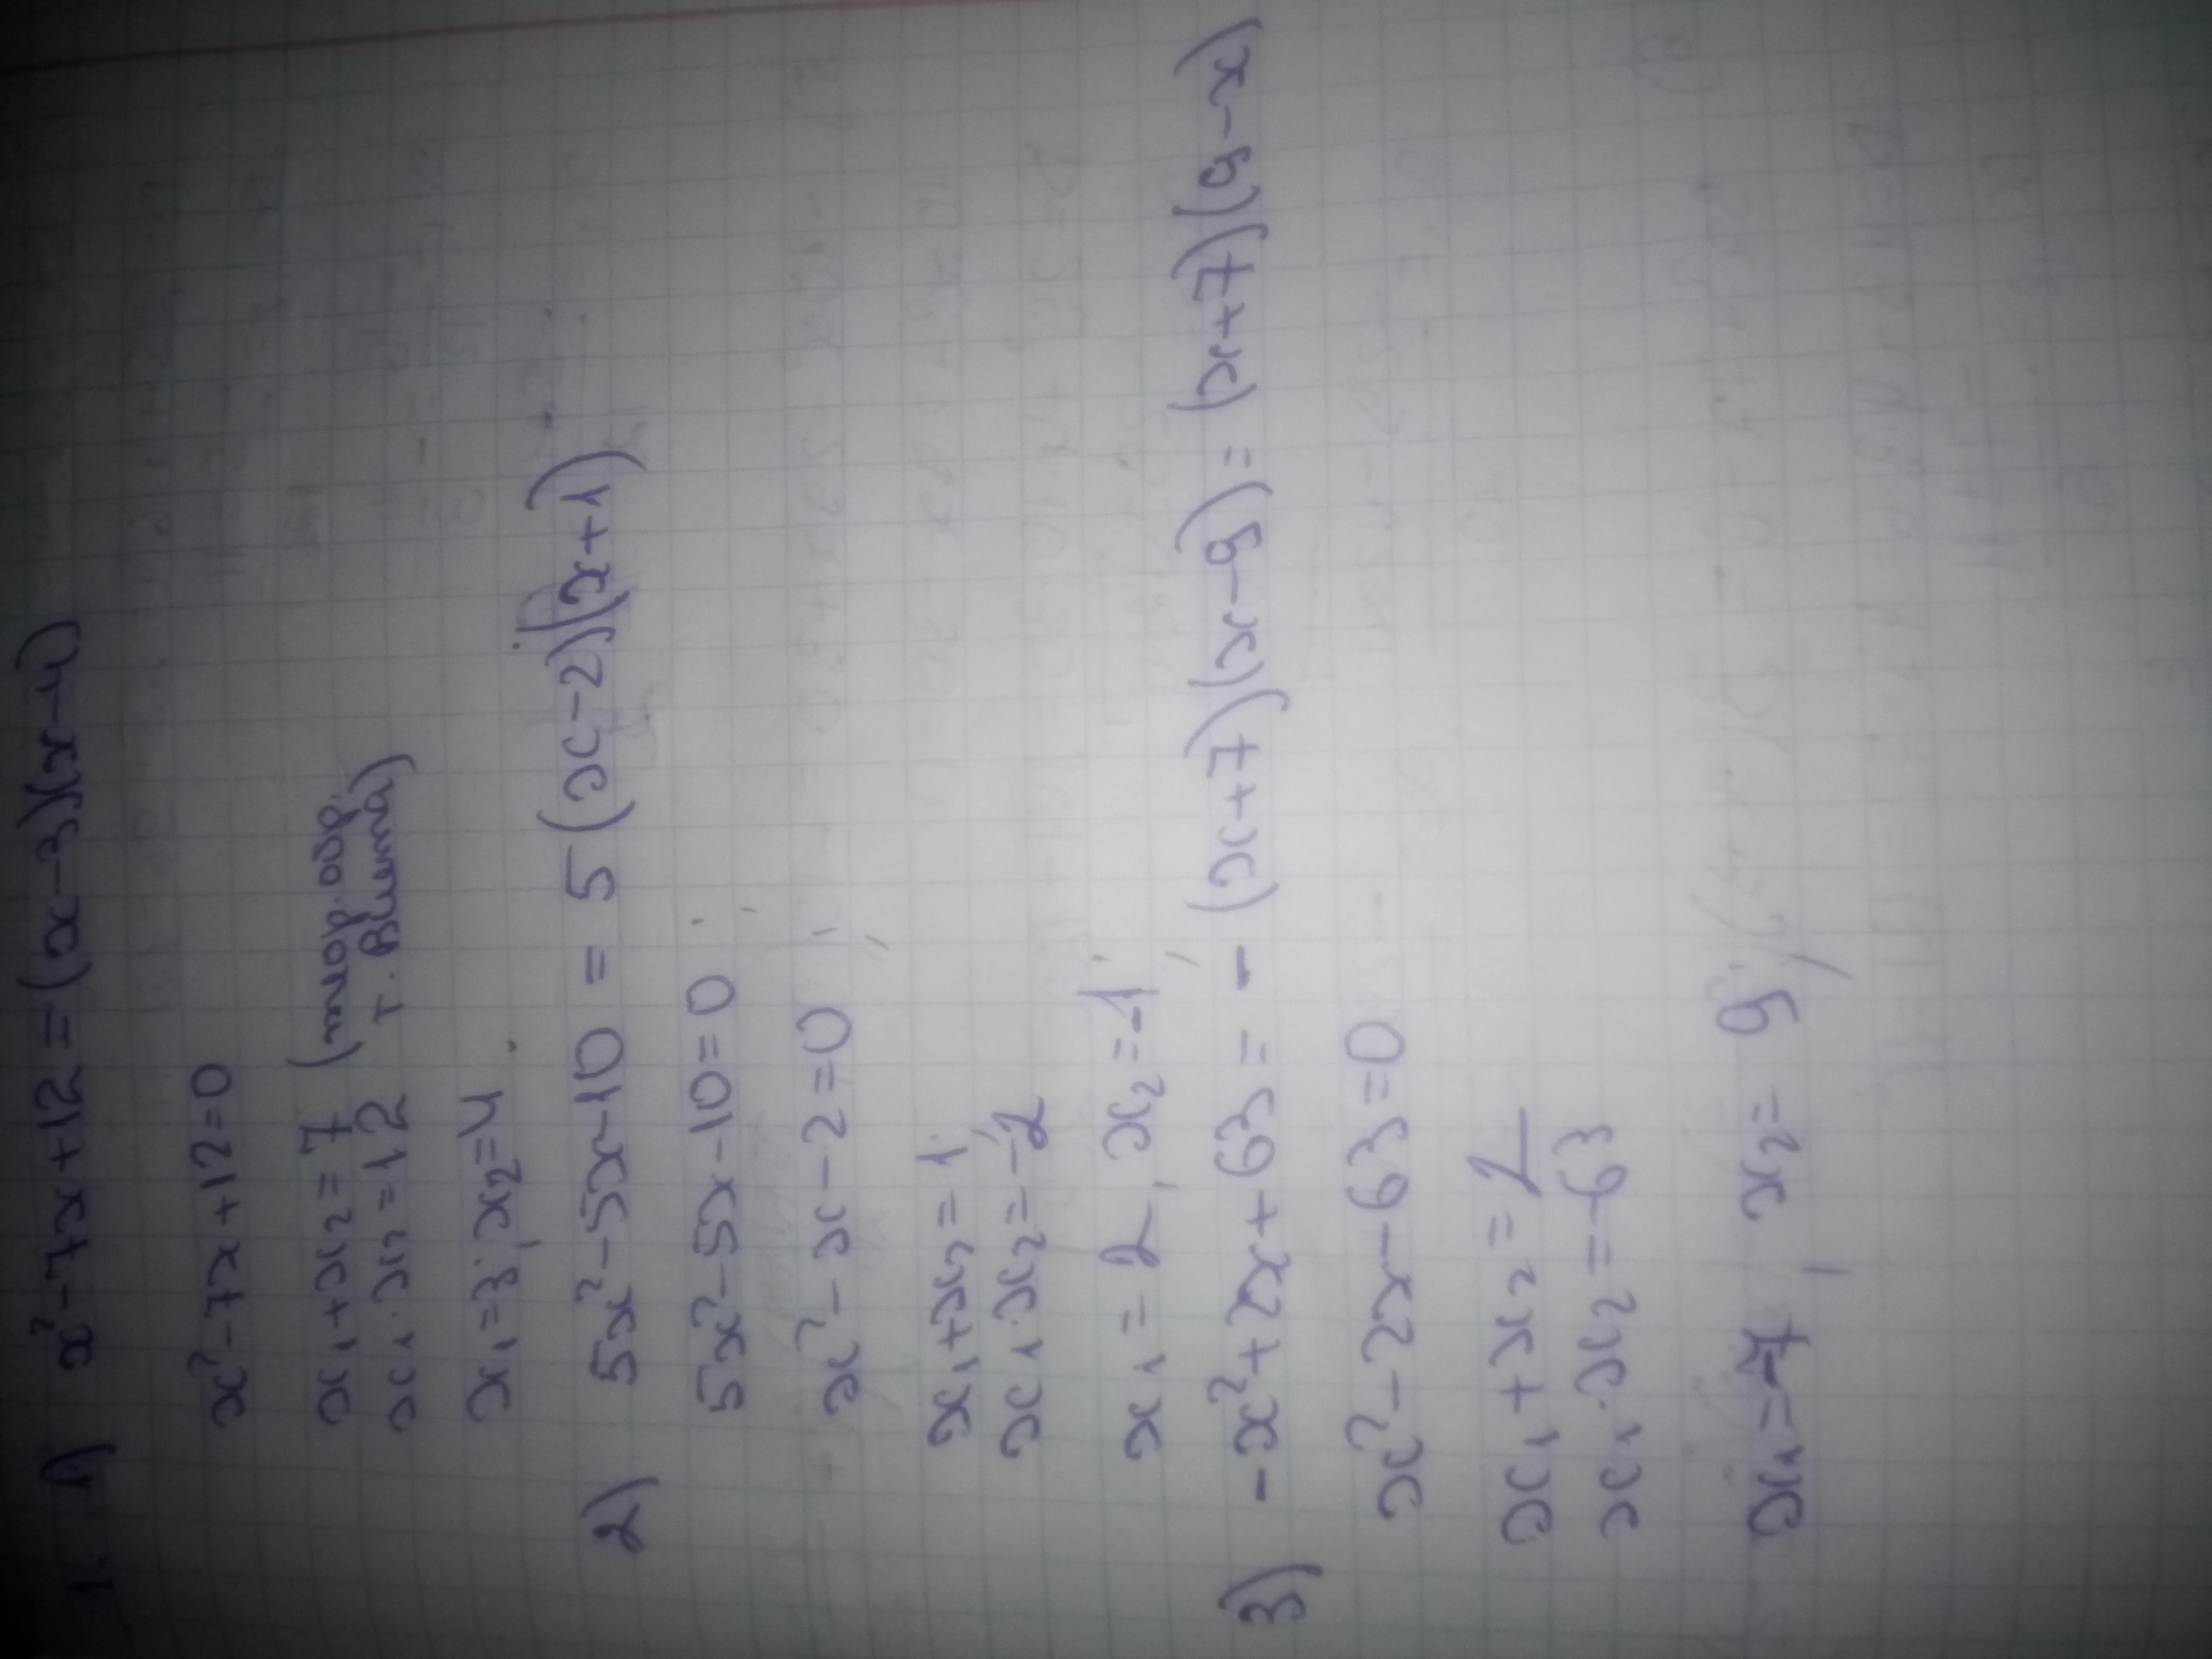 1. 1) x²-7x+12=(x-3)(x-4)
x²-7x+12=0
x₁+x₂=7 (теор. обр.
x₁·x₂=12 т. Виета)
x₁=3; x₂=4
2) 5x²-5x-10 = 5(x-2)(x+1)
5x²-5x-10=0
x²-x-2=0
x₁+x₂=1
x₁·x₂=-2
x₁=2, x₂=-1
3) -x²+2x+63=-(x+7)(x-9)=(x+7)(9-x)
x²-2x-63=0
x₁+x₂=2
x₁·x₂=-63
x₁=-7, x₂=9